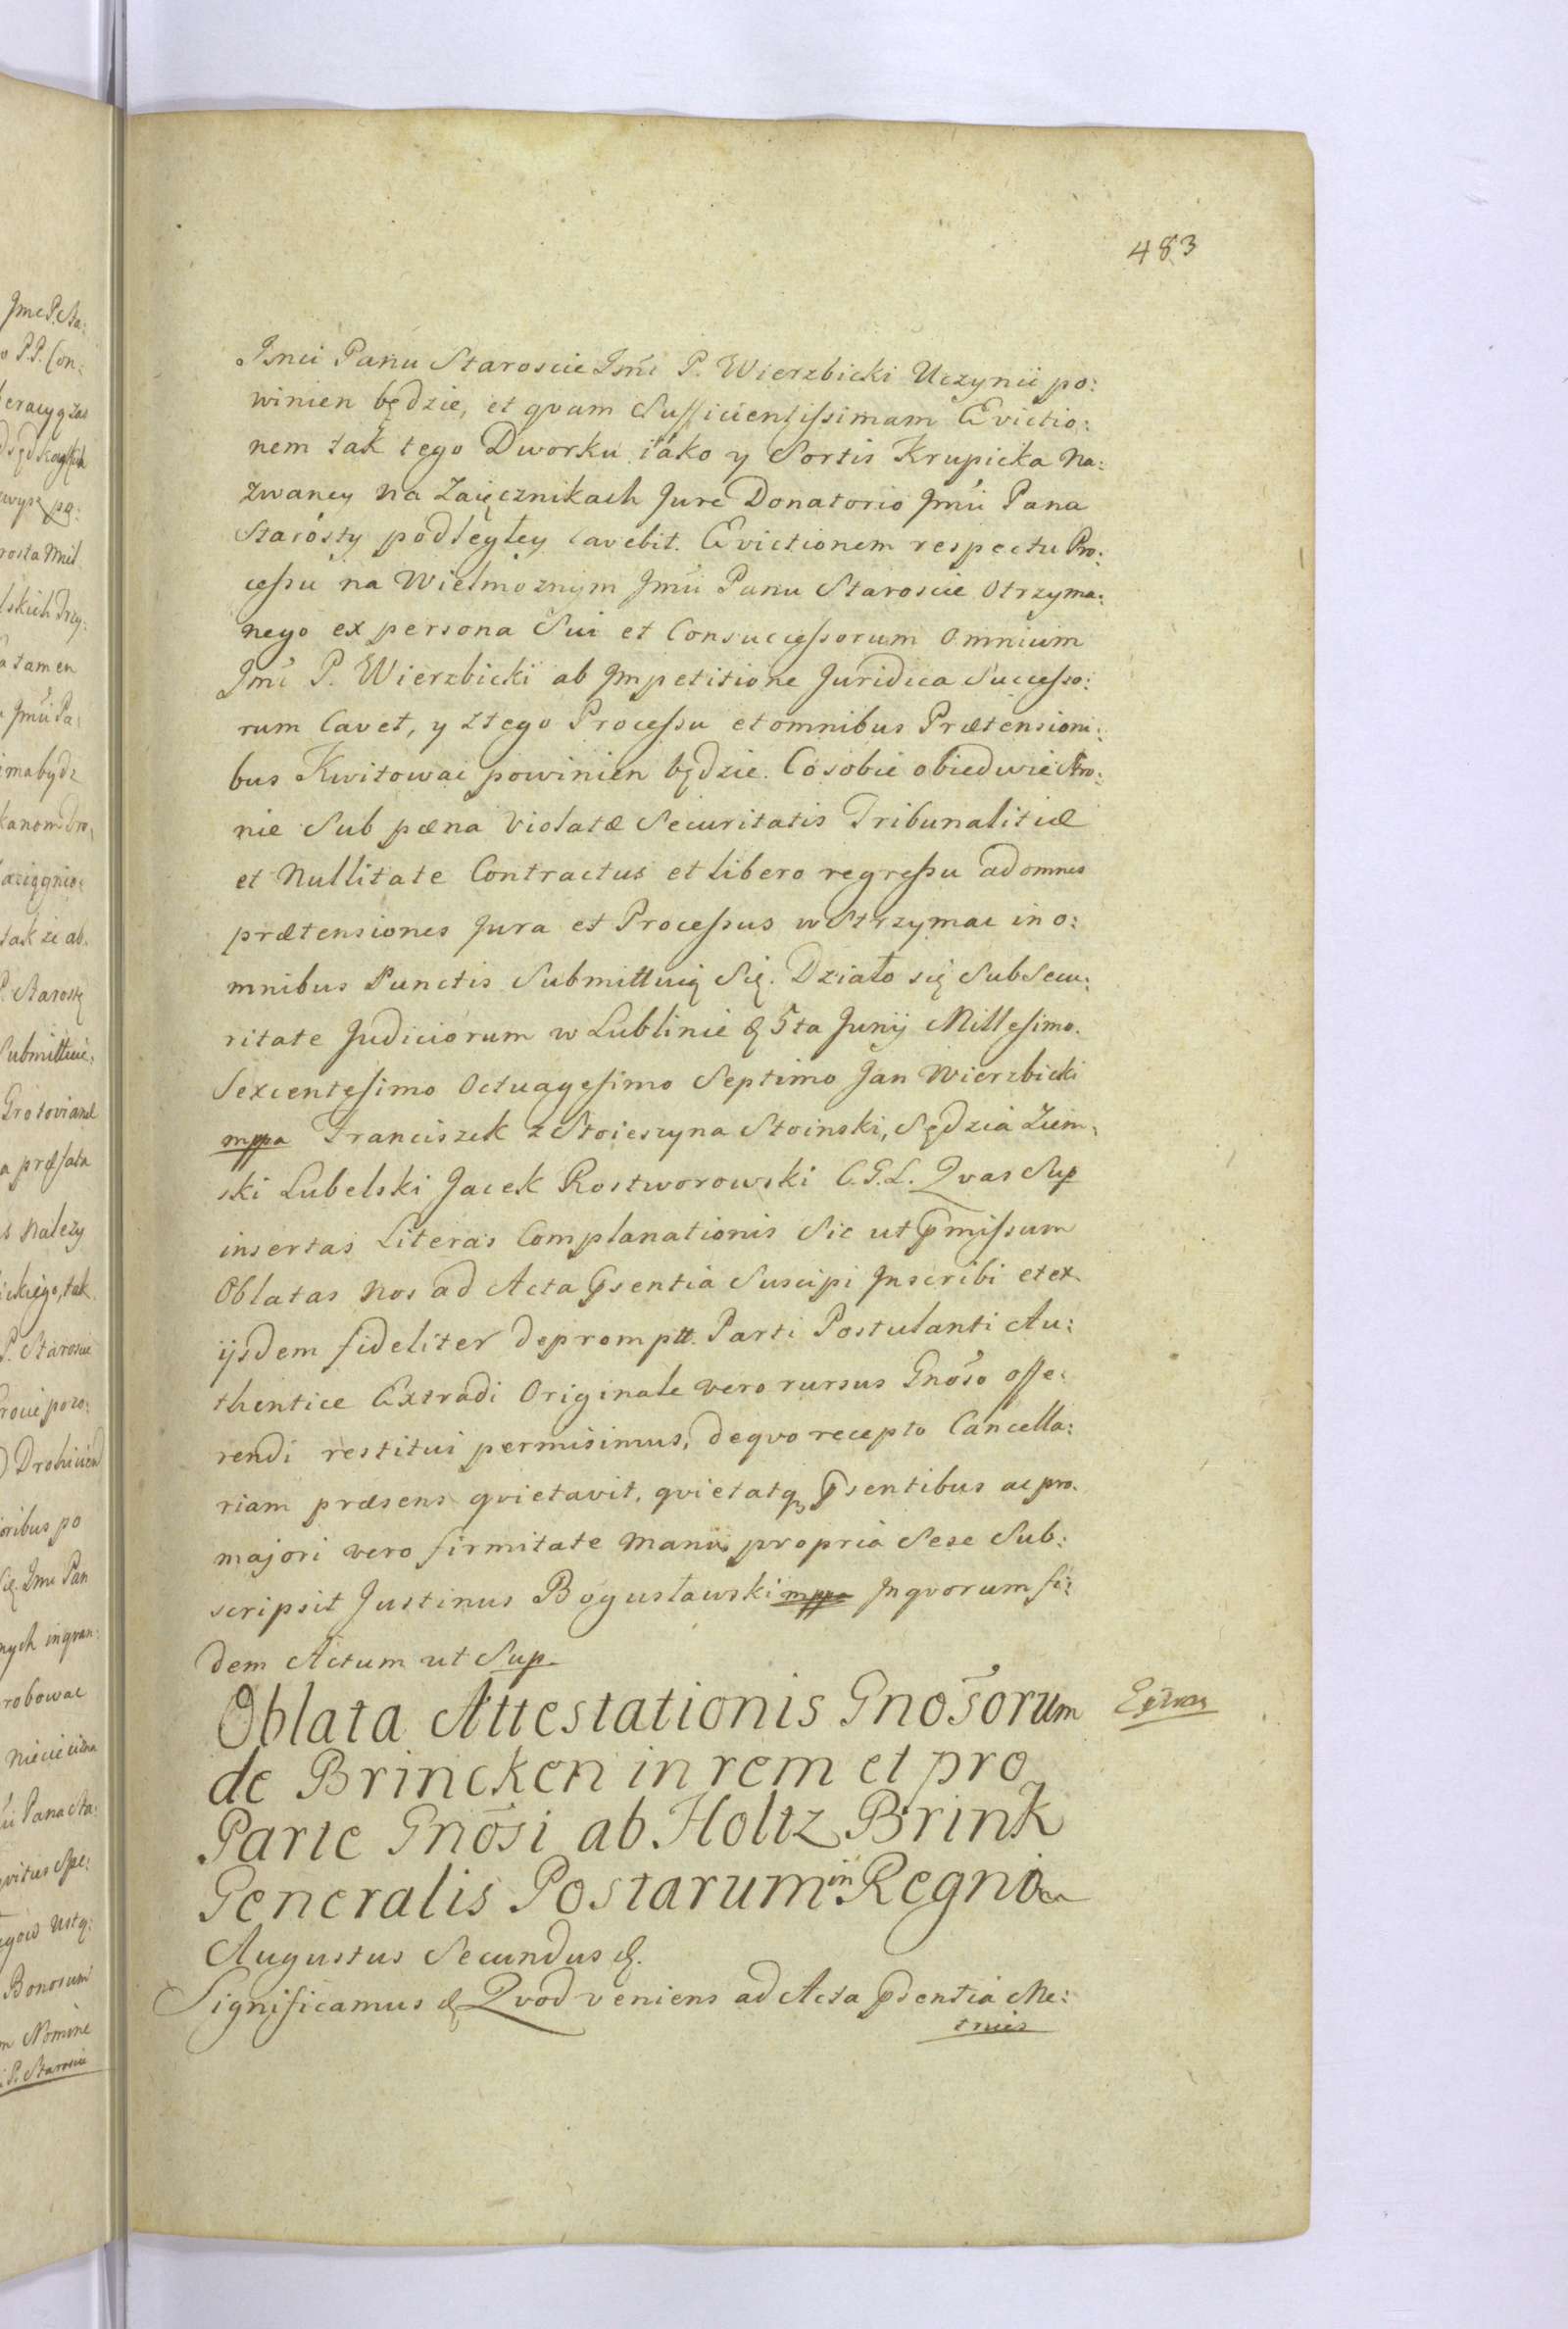 483
Jmci Panu Staroscie Jmć P. Wierzbicki Uczynić po:
winien będzie, et qvam Sufficientissimam Evictio:
nem tak tego Dworku iáko y Sortis Krupicka Na:
zwaney na Zaięcznikach Jure Donatorio Jmći Pana
Starósty podległey Cavebit. Evictionem respectu Pro:
cessu na Wielmoznym Jmći Panu Staroscie Otrzyma:
nego ex persona Sui et Consuccessorum Omnium
Jmć P. Wierzbicki ab Jmpetitione Juridica Successo:
rum Cavet, y ztego Processu et omnibus Prætensioni:
bus Kwitowac powinien będzie. Co sobie obiedwie Stro:
nie Sub pæna Violatæ Securitatis Tribunalitiæ
et Nullitate Contractus et libero regressu ad omnes
prætensiones Jura et Processus wStrzymac in o:
mnibus Punctis Submittuią Się. Działo się Sub Secu:
ritate Judiciorum w Lublinie & 5ta Junij Millesimo.
Sexcentesimo Octuagesimo Septimo Jan Wierzbicki
mppa Franciszek z Stoieszyna Stoinski, Sędzia Ziem:
ski Lubelski Jacek Rostworowski C.G.L. Qvas Sup
insertas Literas Complanationis Sic ut pmissum
Oblatas Nos ad Acta psentia Suscipi Jnscribi et ex
ijsdem fideliter depromptt. Parti Postulanti Au:
thentice Extradi Originale vero rursus Gnoso offe:
rendi restitui permisimus, de qvo recepto Cancella:
riam præsens qvietavit, qvietatq psentibus ac pro
majori vero firmitate Manu propria Sese Sub:
scripsit Justinus Bogusławski mppa Jn qvorum fi:
dem Actum ut Sup.
Oblata Attestationis Gnosorum
de Brincken in rem et pro
Parte Gnosi ab Holtz Brink
Generalis Postarum in Regno
Augustus Secundus &.
Significamus & Qvod veniens ad Acta psentia Me:
trices